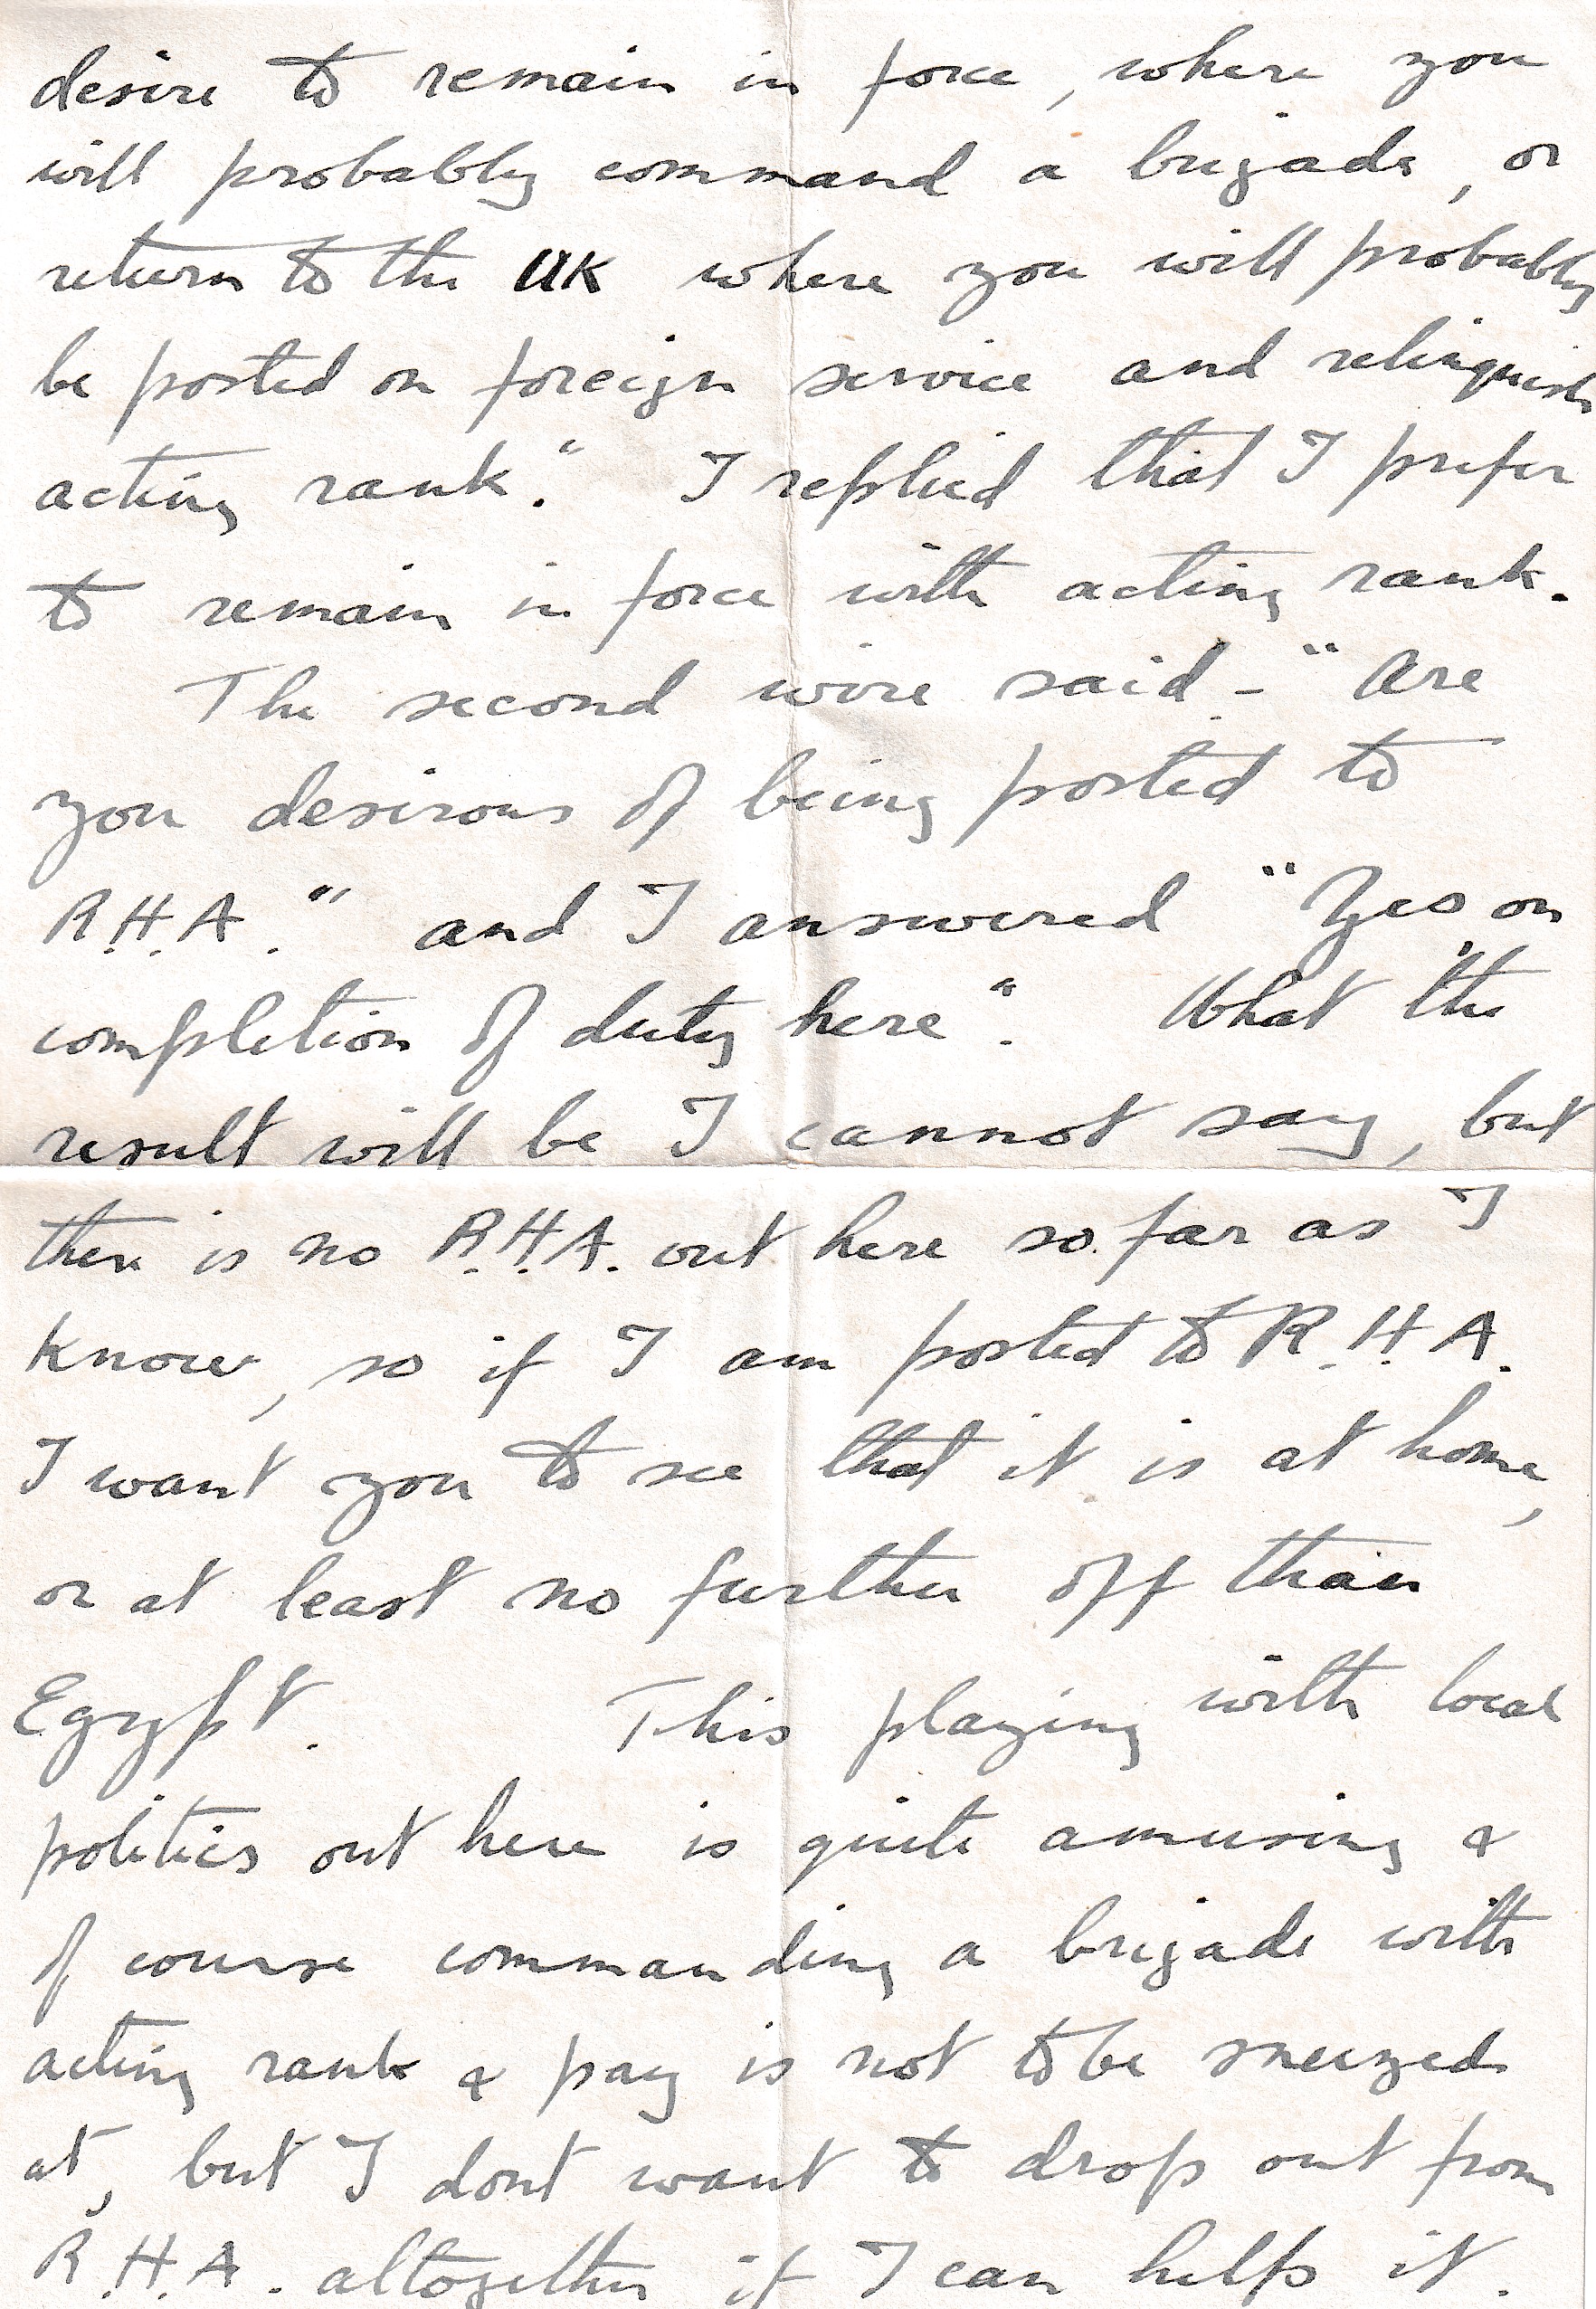 desire to remain in force, where you
will probably command a brigade, or
return to the UK where you will probably
be posted on foreign service and relinquish
acting rank." I replied that I prefer
to remain in force with acting rank.
The second wire said - "Are
you desirous of being posted to
R.H.A." and I answered "Yes on
completion of duty here". What the
result will be I cannot say, but
there is no R.H.A. out here so far as I
know, so if I am posted to R.H.A.
I want you to see that it is at home,
or at least no further off than
Egypt. This playing with local
politics out here is quite amusing &
of course commanding a brigade with
acting rank & pay is not to be sneezed
at, but I dont want to drop out from
R.H.A. altogether if I can help it.